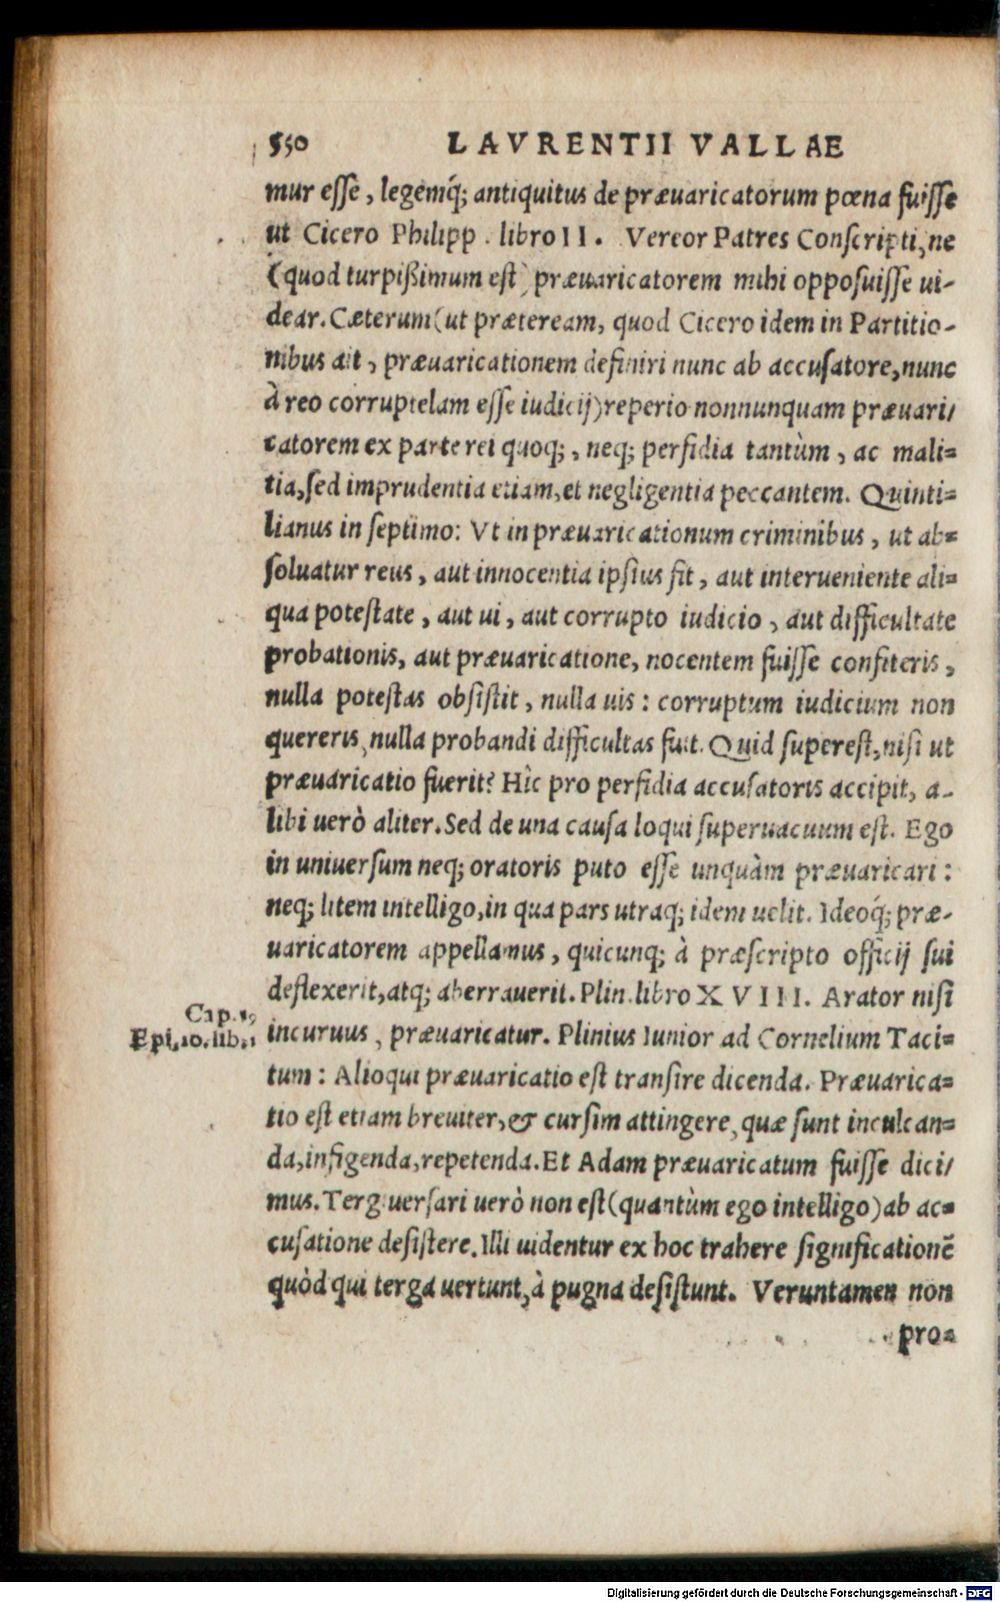 550 LAVRENTII VALLAE
mur esse, legemq́; antiquitus de præuaricatorum pœna fuisse
ut Cicero Philipp. libro II. Vereor Patres Conscripti, ne
(quod turpißimum est) præuaricatorem mihi opposuisse ui-
dear. Cæterum (ut præteream, quod Cicero idem in Partitio-
nibus ait, præuaricationem definiri nunc ab accusatore, nunc
à reo corruptelam esse iudicij) reperio nonnunquam præuari/
catorem ex parte rei quoq;, neq; perfidia tantùm, ac mali=
tia, sed imprudentia etiam, et negligentia peccantem. Quinti=
lianus in septimo: Vt in præuaricationum criminibus, ut ab=
soluatur reus, aut innocentia ipsius fit, aut interueniente ali=
qua potestate, aut ui, aut corrupto iudicio, aut difficultate
probationis, aut præuaricatione, nocentem fuisse confiteris,
nulla potestas obsistit, nulla uis: corruptum iudicium non
quereris, nulla probandi difficultas fuit. Quid superest, nisi ut
præuaricatio fuerit? Hìc pro perfidia accusatoris accipit, a-
libi uerò aliter. Sed de una causa loqui superuacuum est. Ego
in uniuersum neq; oratoris puto esse unquàm præuaricari:
neq; litem intelligo, in qua pars utraq; idem uelit. Ideoq́; præ-
uaricatorem appellamus, quicunq; à præscripto officij sui
deflexerit, atq; aberrauerit. Plin. libro XVIII. Arator nisi
Cap. 19
incuruus, præuaricatur. Plinius Iunior ad Cornelium Taci=
Epi. 10. lib. 1
tum: Alioqui præuaricatio est transire dicenda. Præuarica=
tio est etiam breuiter, & cursim attingere, quæ sunt inculcan=
da, infigenda, repetenda. Et Adam præuaricatum fuisse dici/
mus. Tergiuersari uerò non est (quantùm ego intelligo) ab ac=
cusatione desistere. Illi uidentur ex hoc trahere significationẽ
quòd qui terga uertunt, à pugna desistunt. Veruntamen non
pro=
Digitalisierung gefördert durch die Deutsche Forschungsgemeinschaft - DFG